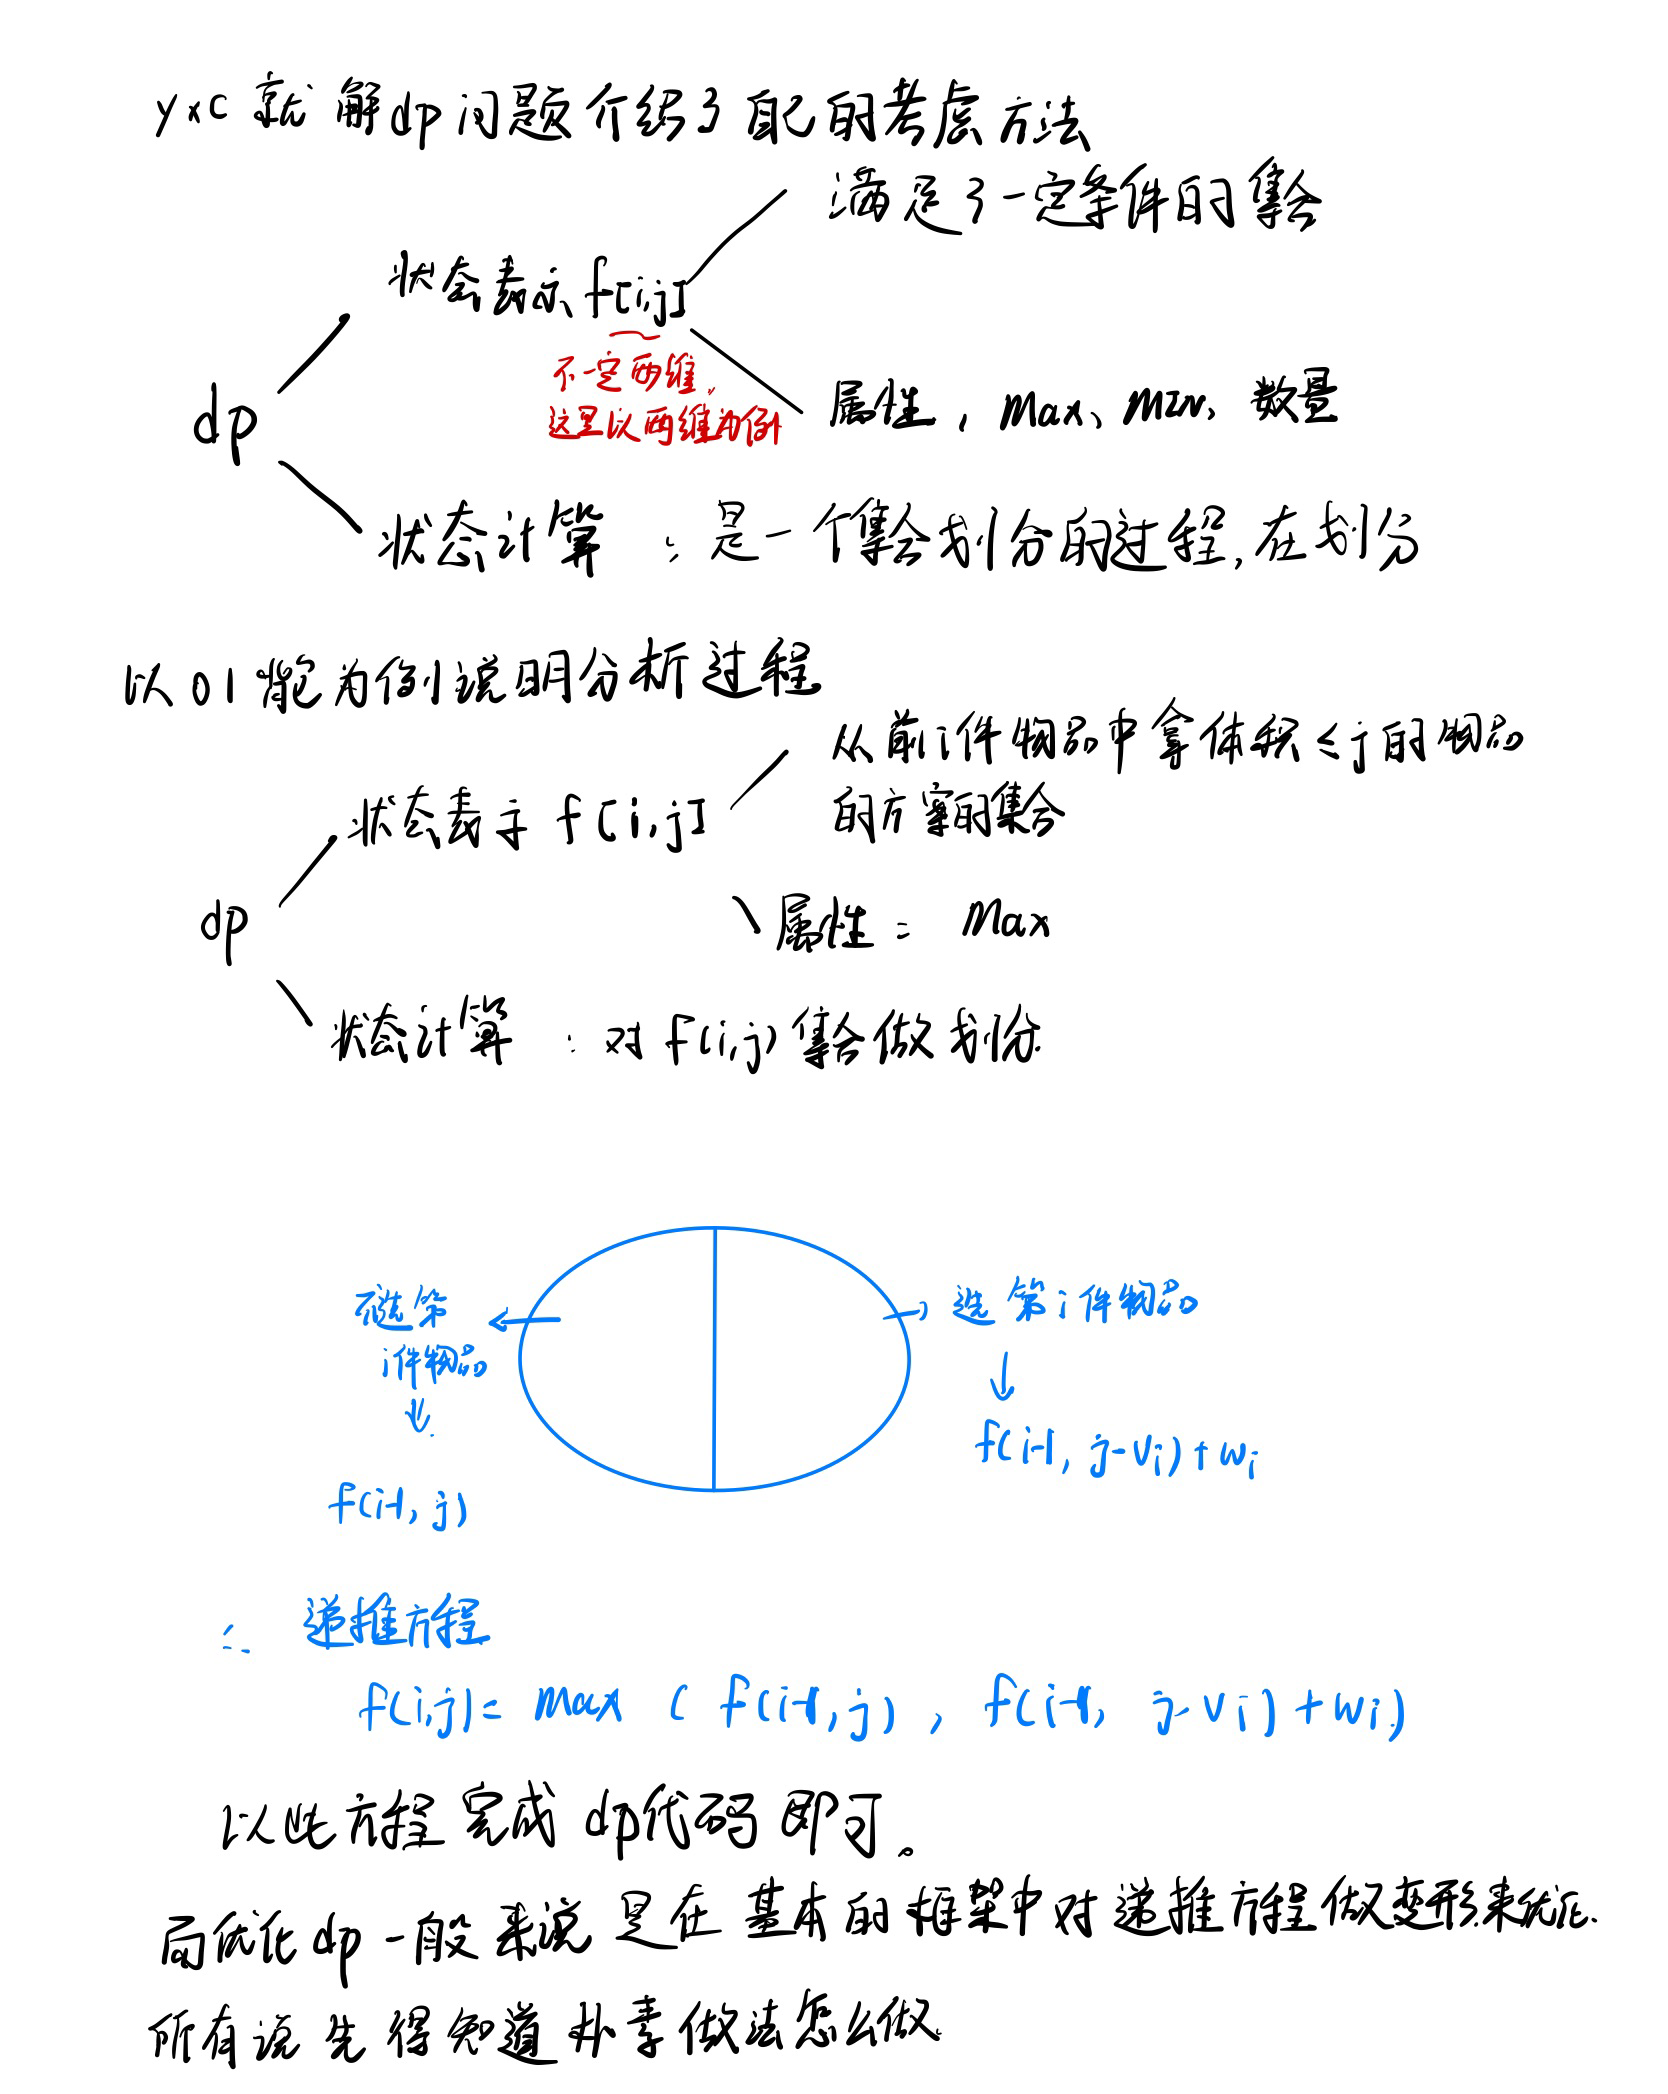 yxc 就解dp问题介绍了自己的考虑方法
满足了一定条件的集合
状态表示 f[i,j]
不一定两维,
这里以两维为例
属性, Max、MIN、数量
dp
状态计算 : 是一个集合划分的过程,在划分
以01背包为例说明分析过程
从前i件物品中拿体积≤j的物品
的方案的集合
状态表示 f[i,j]
属性: Max
dp
状态计算 : 对f(i,j)集合做划分.
不选第
i件物品
选第i件物品
f(i-1, j-vi)+wi
f(i-1, j)
∴ 递推方程
f(i,j)= max ( f(i-1,j) , f(i-1, j-vi)+wi)
以此方程完成dp代码即可。
而优化dp一般来说是在基本的框架中对递推方程做变形来优化.
所有说先得知道朴素做法怎么做